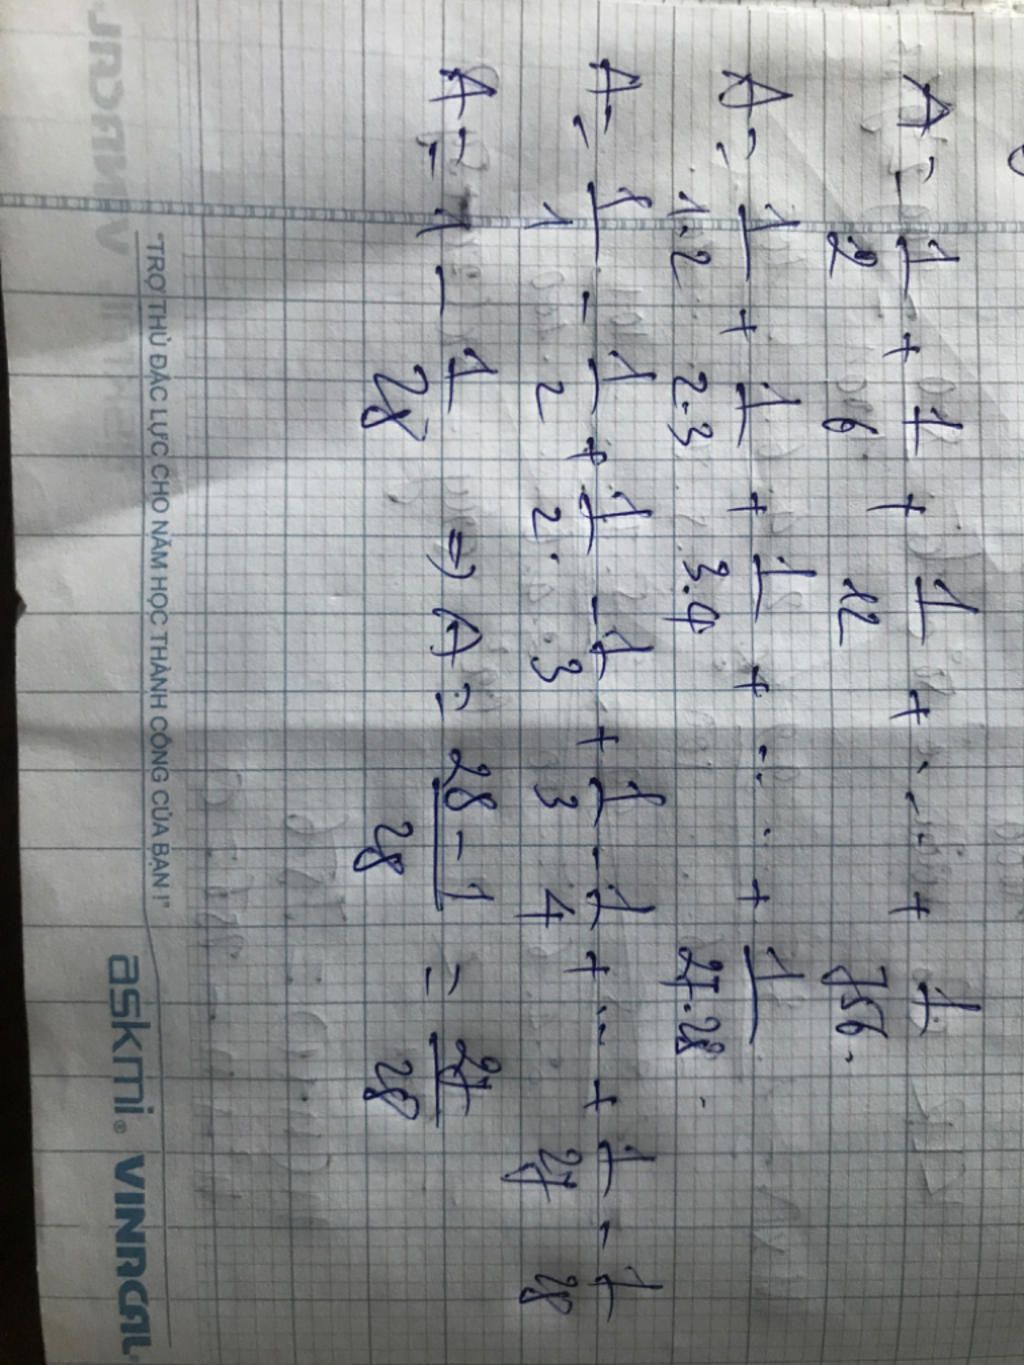 A = 1/2 + 1/6 + 1/12 + ... + 1/756.
A = 1/1.2 + 1/2.3 + 1/3.4 + ... + 1/27.28.
A = 1/1 - 1/2 + 1/2 - 1/3 + 1/3 - 1/4 + ... + 1/27 - 1/28
A = 1 - 1/28 => A = 28 - 1/28 = 27/28
"TRỢ THỦ ĐẮC LỰC CHO NĂM HỌC THÀNH CÔNG CỦA BẠN !"
askmi® VINACAL